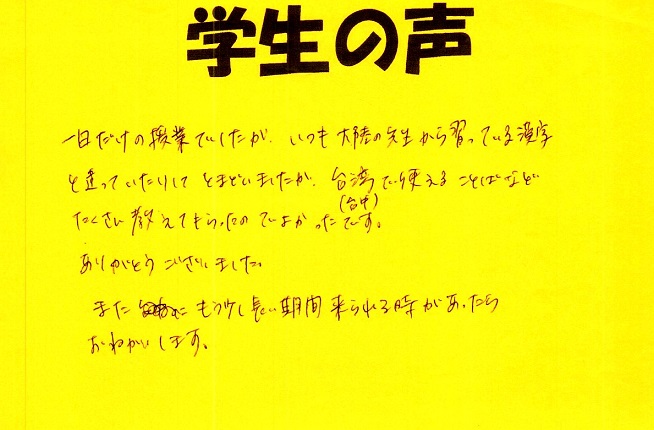 学生の声
一日だけの授業でしたが、いつも大陸の先生から習っている漢字
と違っていたりして とまどいましたが、台湾で使えることばなど
(台中)
たくさん教えてもらったのでよかったです。
ありがとうございました。
また にもう少し長い期間来られる時があったら
おねがいします。